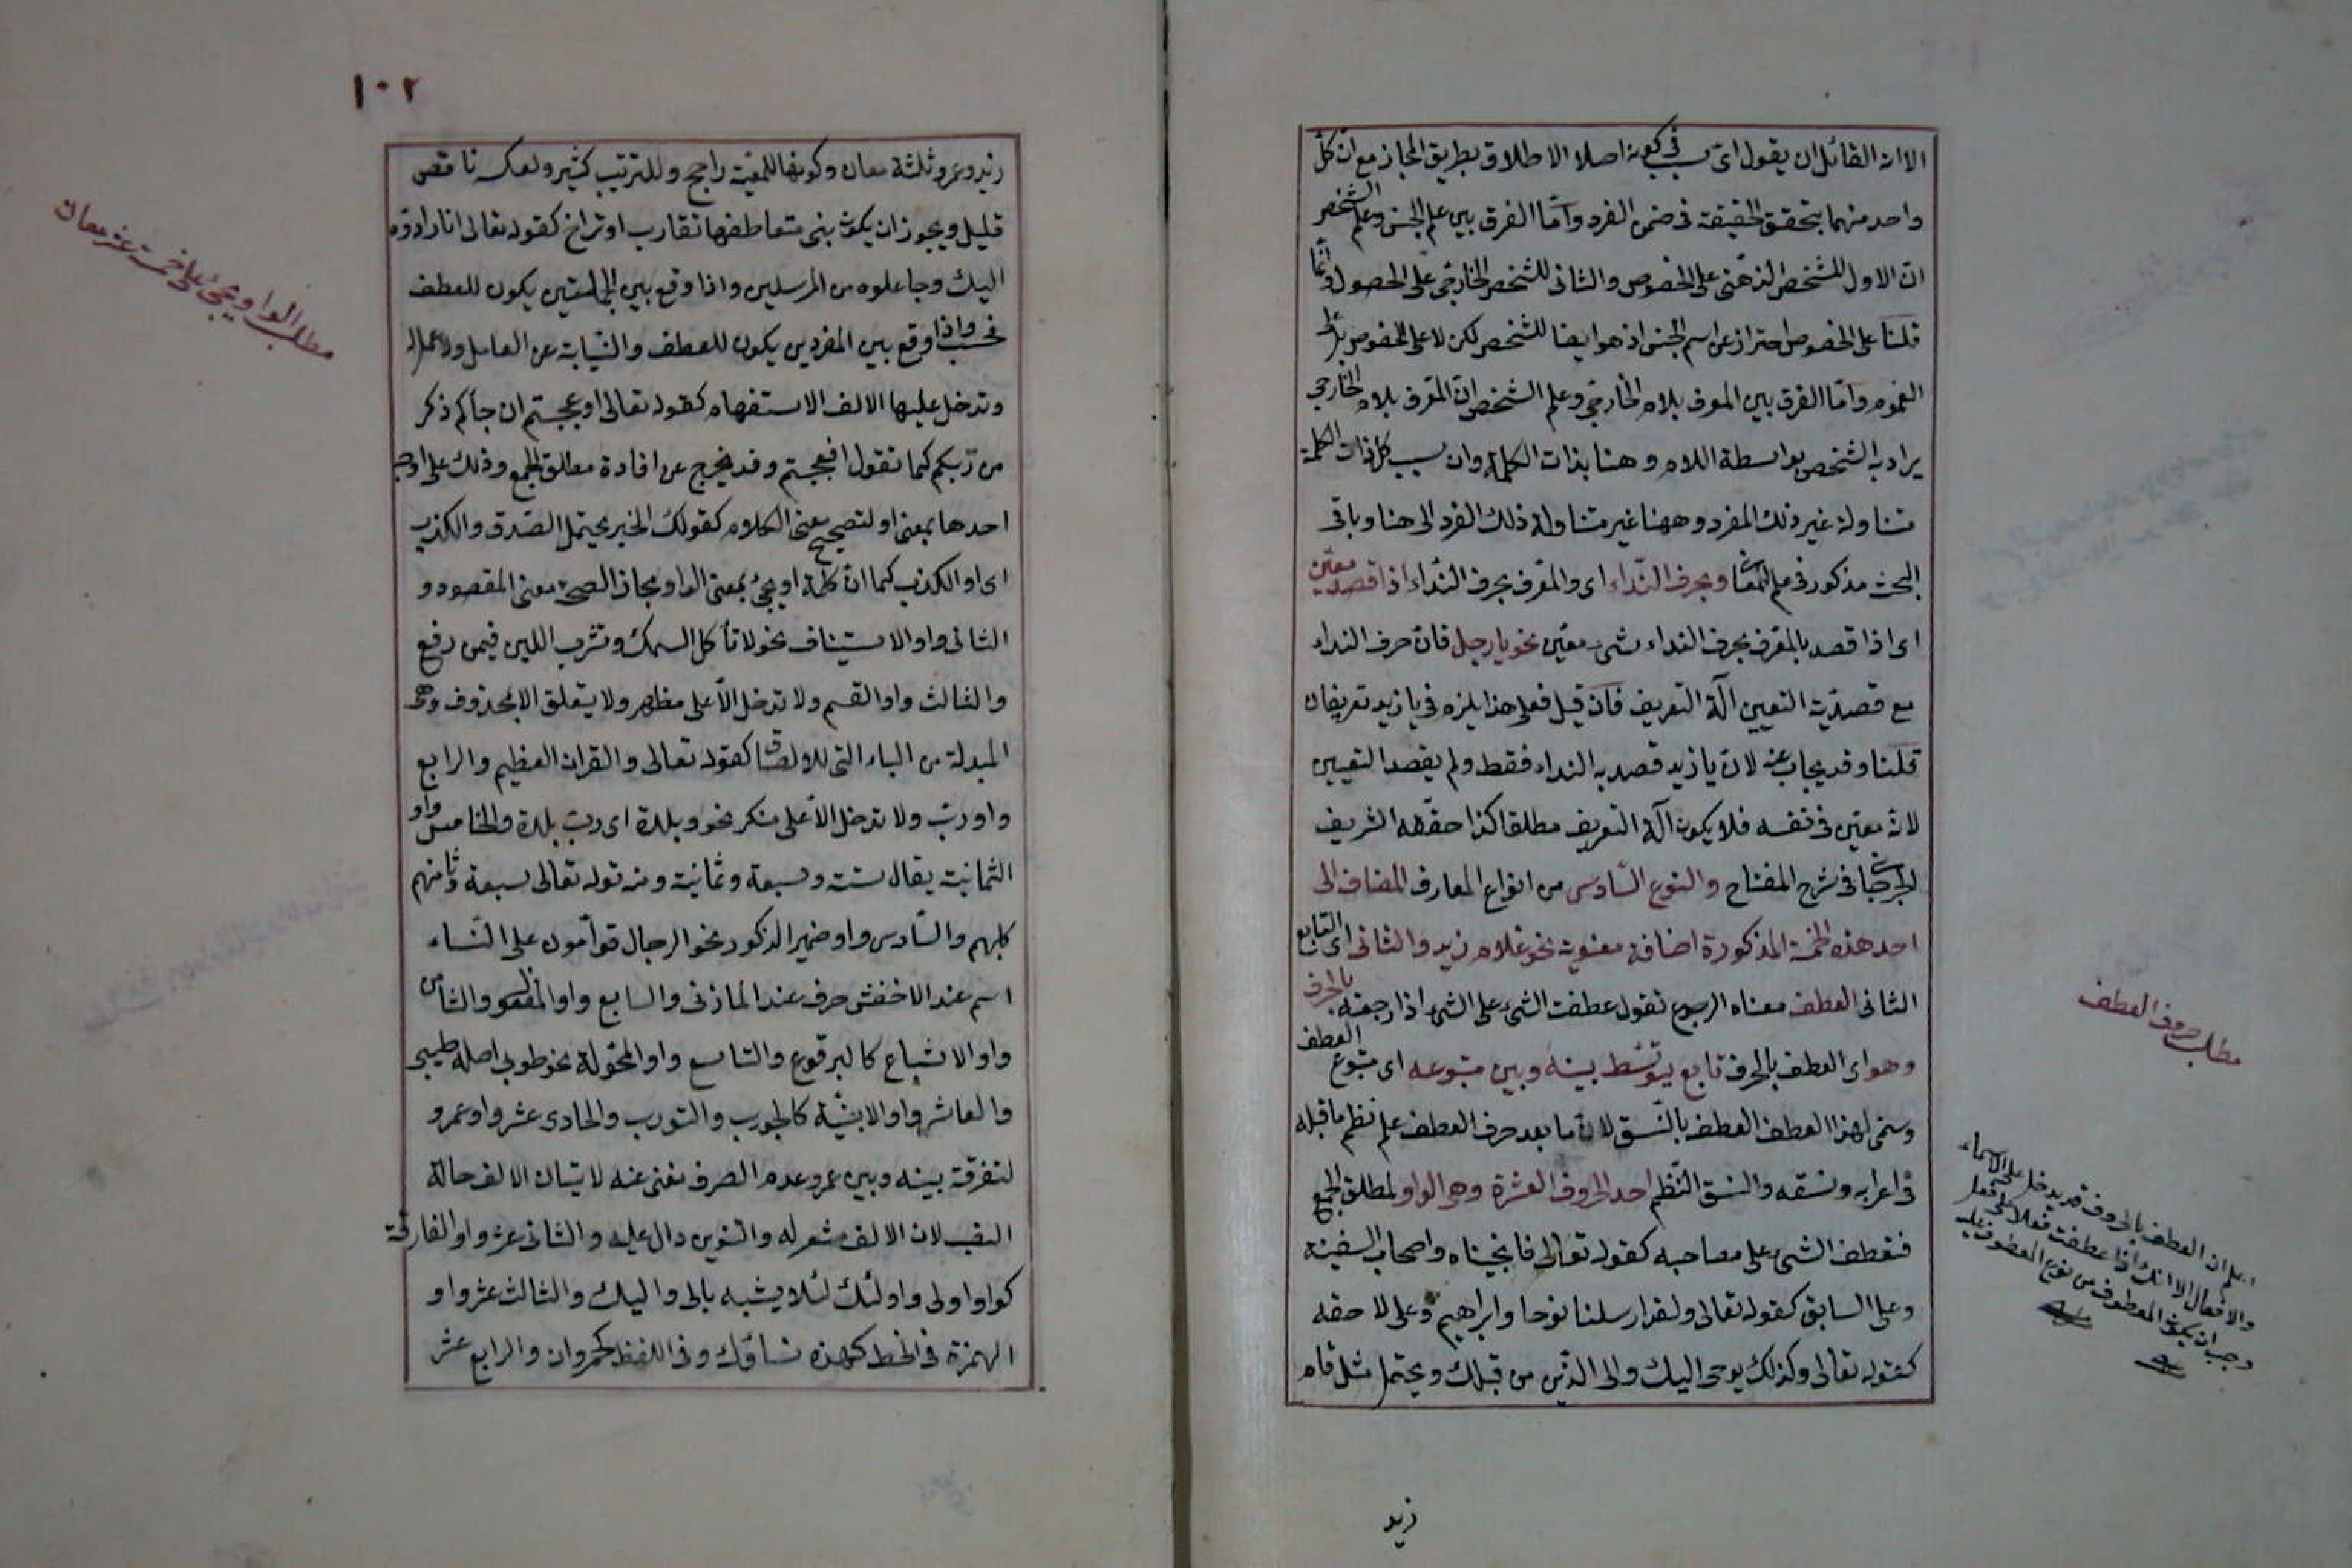 الا انه القائل ان يقول اى سبب فى كونه اصلا الاطلاق بطريق المجاز مع ان كل
واحد منهما بتحقق الحقيقة فى ضمن الفرد واما الفرق بين علم الجنس وعلم الشخص
ان الاول للشخص الذهنى على الخصوص والثانى للشخص الخارجى على الحصول وانما
قلنا على الخصوص احتراز عن اسم الجنس اذ هو ايضا للشخص لكن لا على الخصوص بل على
العموم واما الفرق بين المعرف بلام الخارجى وعلم الشخص ان المعرف بلام الخارجى
يراد به الشخص بواسطة اللام وهنا بذات الكلمة وان سبب كل ذات الكلمة
متناولة غير ذلك المفرد وههنا غير متناولة ذلك الفرد الى هنا وباقى
البحث مذكور فى علم المعانى وبحرف النداء اى والمعرف بحرف النداء اذا قصد معين
اى اذا قصد بالمعرف بحرف النداء شىء معين نحو يا رجل فان حرف النداء
مع قصدية التعيين آلة التعريف فان قيل فعلى هذا يلزم فى يا زيد تعريفان
قلنا وقد يجاب عنه لان يا زيد قصد به النداء فقط ولم يقصد التعيين
لانه معين فى نفسه فلا يكون آلة التعريف مطلقا كذا حققه الشريف
الجرجانى فى شرح المفتاح والنوع السادس من انواع المعارف المضاف الى
احد هذه الخمسة المذكورة اضافة معنوية نحو غلام زيد والثانى اى التابع
الثانى العطف بالحرف معناه الرجوع تقول عطفت الشىء على الشىء اذا رجعته
وهو اى العطف بالحرف تابع يتوسط بينه وبين متبوعه اى متبوع العطف
وسمى لهذا العطف العطف بالنسق لان ما بعد حرف العطف على نظم ما قبله
فى اعرابه ونسقه والنسق النظم احد الحروف العشرة وهى الواو لمطلق الجمع
فتعطف الشىء على مصاحبه كقوله تعالى فانجيناه واصحاب السفينة
وعلى السابق كقوله تعالى ولقد ارسلنا نوحا وابراهيم وعلى لاحقه
كقوله تعالى وكذلك يوحى اليك والى الذين من قبلك ويحتمل مثل قام
زيد
مطلب حروف العطف
اعلم ان العطف بالحروف قد يدخل على الاسماء
والافعال الا انك اذا عطفت فعلا على فعل
وجب ان يكون المعطوف من نوع المعطوف عليه
١٠٢
زيد وعمرو ثلثة معان وكونها للمعية راجح وللترتيب كثير ولعكسه ناقص
قليل ويجوز ان يكون بين متعاطفها تقارب او تراخ كقوله تعالى انا رادوه
اليك وجاعلوه من المرسلين واذا وقع بين الجملتين يكون للعطف
فحسب واذا وقع بين المفردين يكون للعطف والنيابة عن العامل ولا عمل له
وتدخل عليها الالف الاستفهام كقوله تعالى اوعجبتم ان جاءكم ذكر
من ربكم كما تقول افعجبتم وقد يخرج عن افادة مطلق الجمع وذلك على اوجه
احدها بمعنى او لتصحيح معنى الكلام كقولك الخبر يحتمل الصدق والكذب
اى او الكذب كما ان كلمة او يجئ بمعنى الواو مجاز الصحة معنى المقصود و
الثانى واو الاستيناف نحو لا تأكل السمك وتشرب اللبن فيمن رفع
والثالث واو القسم ولا تدخل الا على مظهر ولا يتعلق الا بمحذوف وهى
المبدلة من الباء التى للالصاق كقوله تعالى والقران العظيم والرابع
واو رب ولا تدخل الا على منكر نحو وبلدة اى رب بلدة والخامس واو
الثمانية يقال ستة وسبعة وثمانية ومنه قوله تعالى سبعة وثامنهم
كلبهم والسادس واو ضمير الذكور نحو الرجال قوامون على النساء
اسم عند الاخفش حرف عند المازنى والسابع واو المفعول والثامن
واو الاشباع كالبرقوع والتاسع واو المحولة نحو طوبى اصله طيبى
والعاشر واو الابنية كالجورب والتورب والحادى عشر واو عمرو
لتفرقة بينه وبين عمر وعدم الصرف نغنى عنه لاتيان الالف حالة
النصب لان الالف مشعر له والتنوين دال عليه والثانى عشر واو الفارقة
كواو اولى واولئك لئلا يشبه بالى واليك والثالث عشر واو
الهمزة فى الخط كهذه نساؤك وفى اللفظ كحمروان والرابع عشر
مطلب الواو ويجئ على خمسة عشر معان